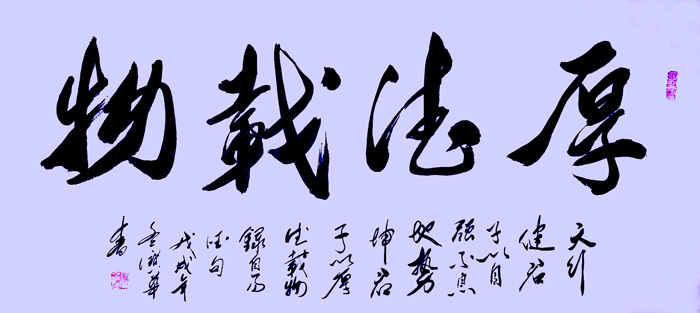 厚德載物
天行
健君
子以自
强不息
地勢
坤君
子以厚
德載物
錄自易
句
戊戌年
華
書